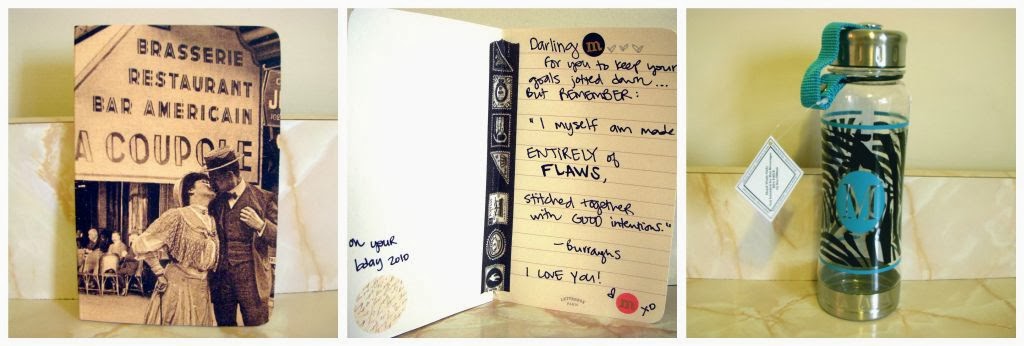 BRASSERIE
RESTAURANT
BAR AMERICAIN
A COUPOLE
J
on your
bday 2010
Darling m
For you to keep your
goals jotted down...
But REMEMBER:
"I myself am made
ENTIRELY of
FLAWS,
stitched together
with GOOD intentions."
—Burroughs
I LOVE YOU!
m xo
M